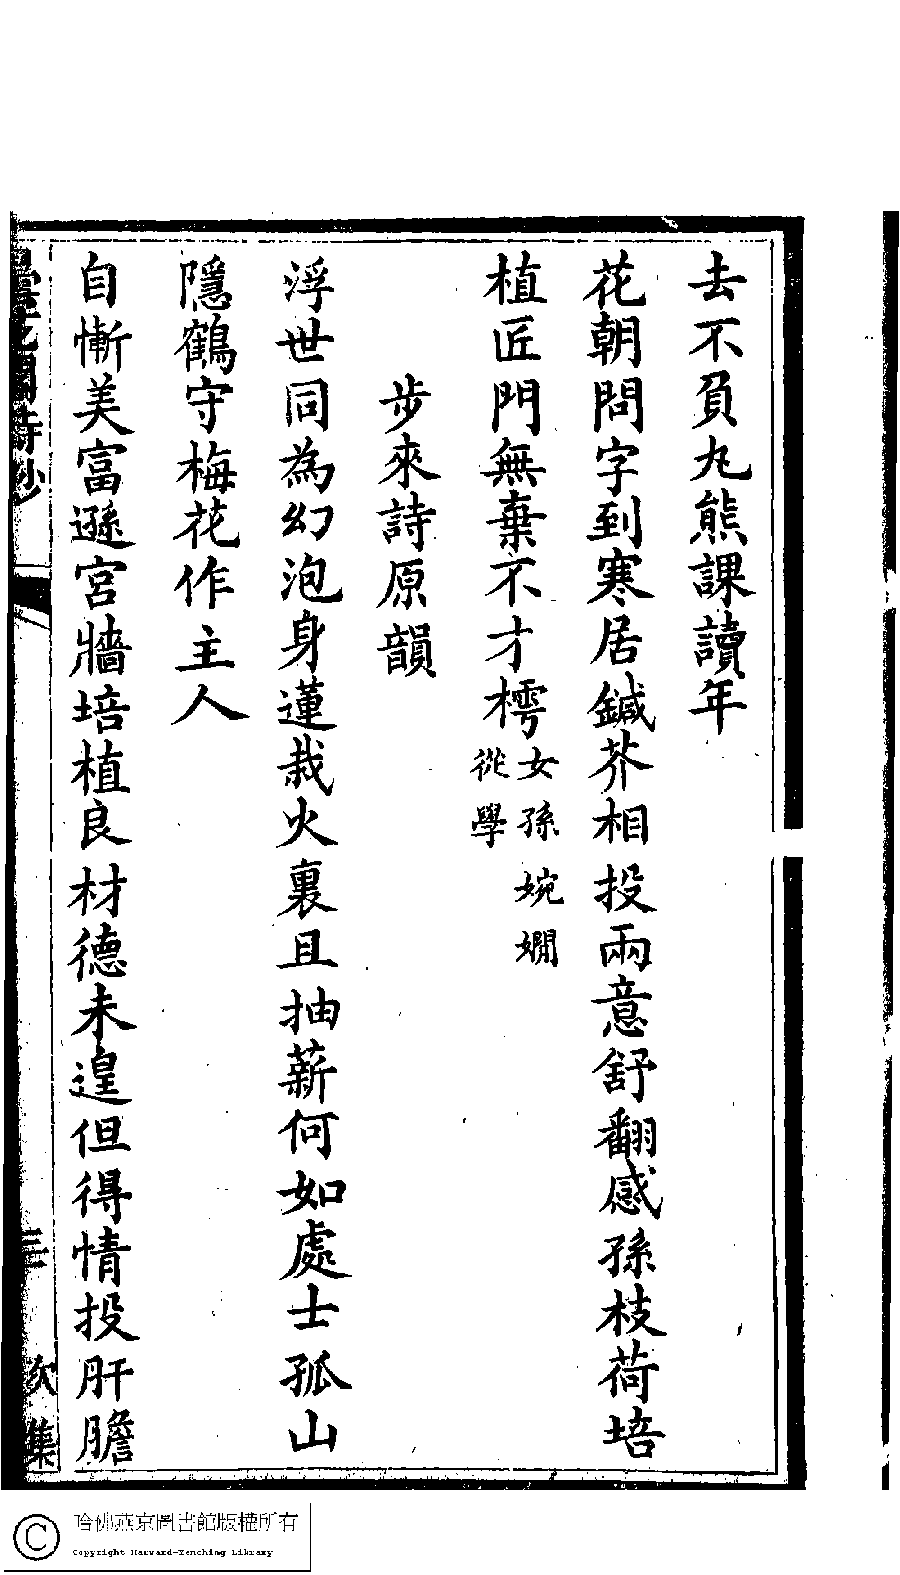 去不負丸熊課讀年
花朝問字到寒居鍼芥相投兩意舒翻感孫枝荷培
植匠門無棄不才樗女孫婉嫻從學
步來詩原韻
浮世同為幻泡身蓮栽火裏且抽薪何如處士孤山
隱鶴守梅花作主人
自慚美富遜宮牆培植良材德未遑但得情投肝膽
詩鈔
三
次集
哈佛燕京圖書館版權所有
Copyright Harvard-Yenching Library